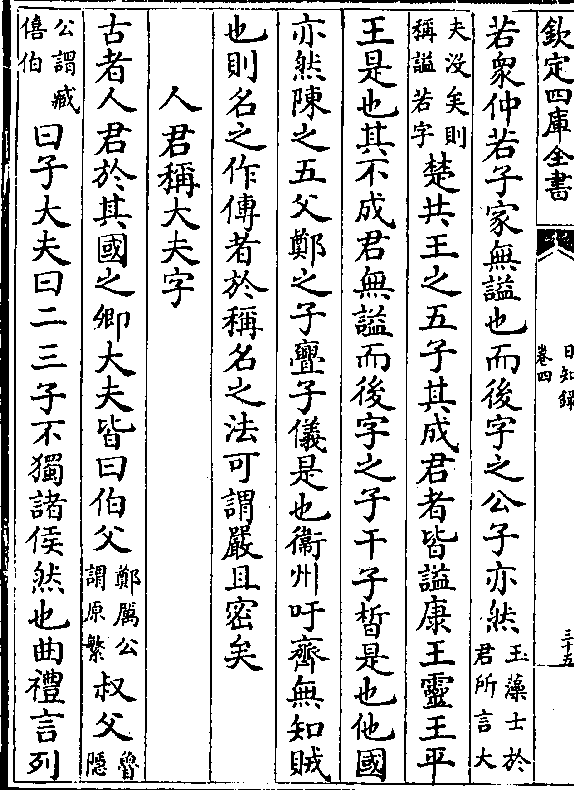 欽定四庫全書
日知錄
卷四
三十五
若衆仲若子家無謚也而後字之公子亦然玉藻士於君所言大
夫没矣則稱謚若字楚共王之五子其成君者皆謚康王靈王平
王是也其不成君無謚而後字之子干子晳是也他國
亦然陳之五父鄭之子亹子儀是也衞州吁齊無知賊
也則名之作傳者於稱名之法可謂嚴且密矣
人君稱大夫字
古者人君於其國之卿大夫皆曰伯父鄭厲公謂原繁叔父魯隱
公謂臧僖伯曰子大夫曰二三子不獨諸侯然也曲禮言列